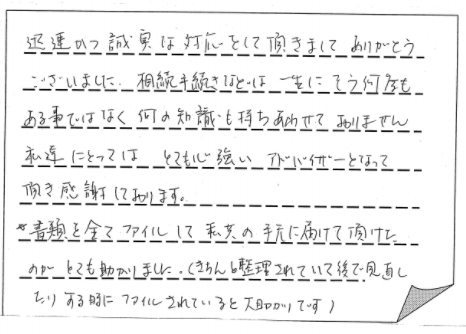 迅速かつ誠実な対応をして頂きまして ありがとう
ございました。相続手続きなどは 一生にそう何度も
ある事ではなく 何の知識も持ちあわせて おりません
私達にとっては とても心強い アドバイザーとなって
頂き感謝しております。
*書類を全て ファイルして 私共の手元に届けて頂けた
のが とても助かりました。(きちんと整理されていて後で見直し
たり する時に ファイルされていると大助かりです)